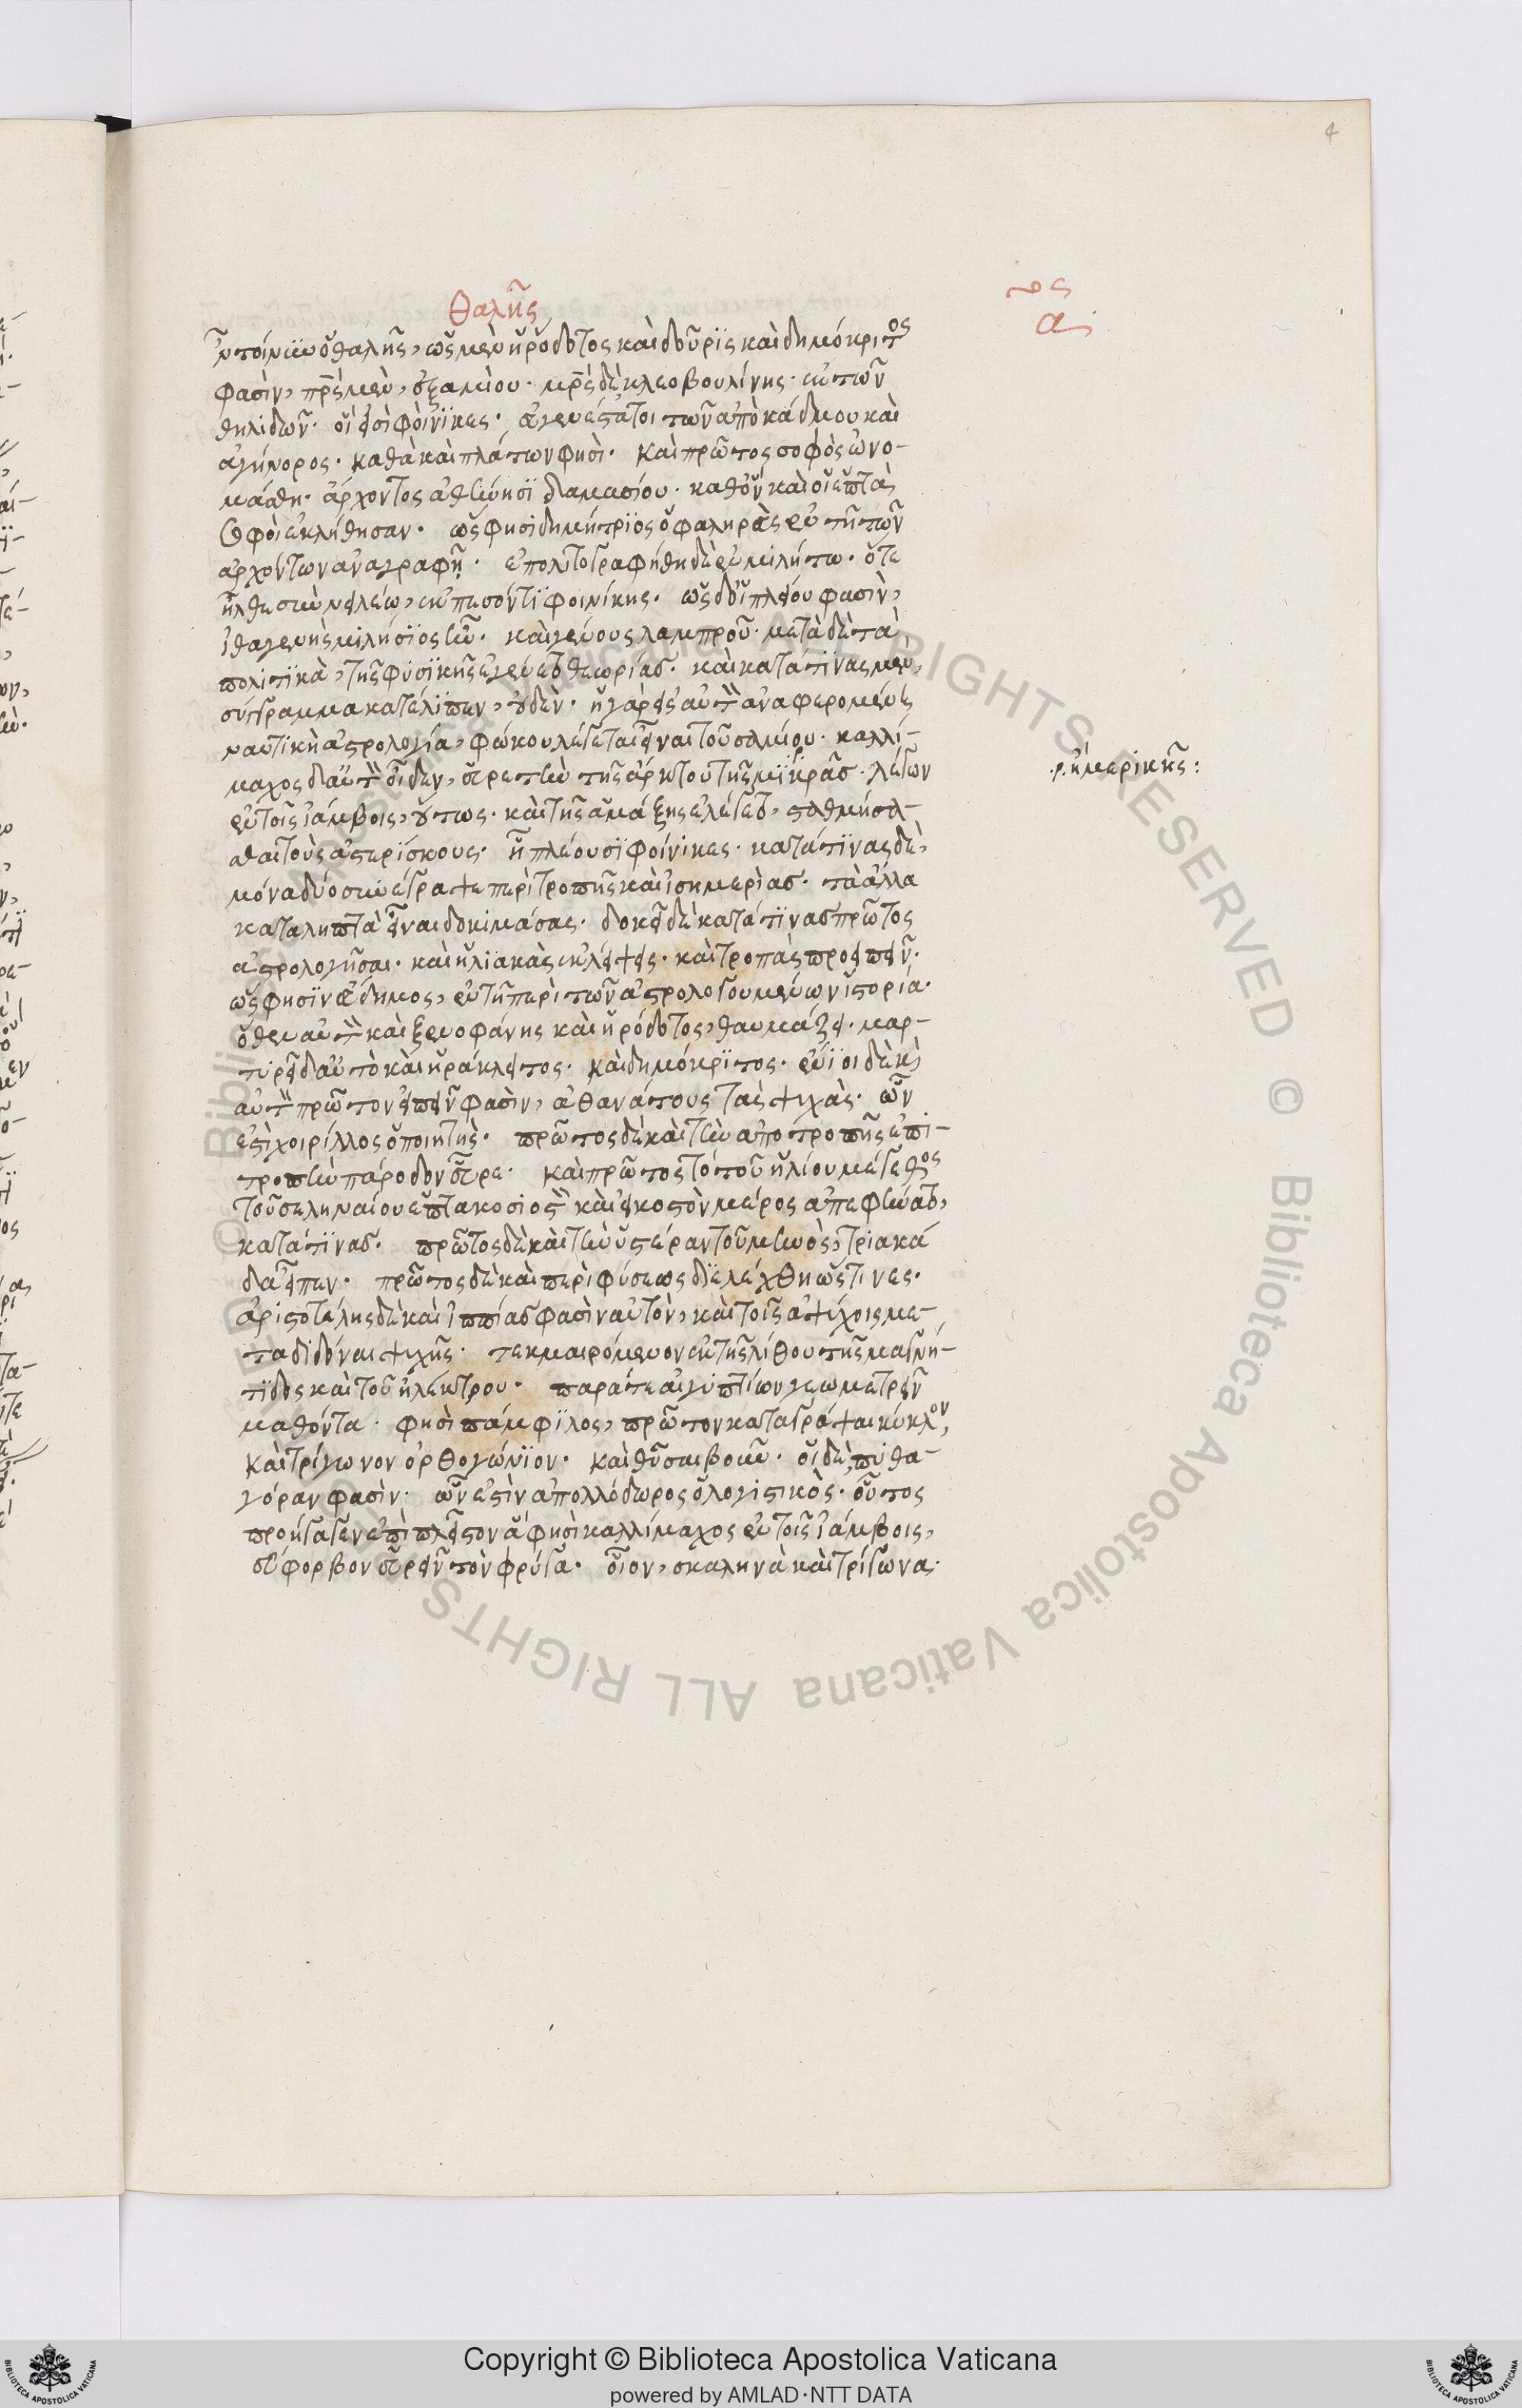 4
θαλῆς
ος
α
ἦν τοίνυν ὁ θαλῆς, ὡς μὲν ἡρόδοτος καὶ δοῦρις καὶ δημόκριτος
φασὶν, πρς μὲν, ἐξαμίου. μρς δὲ κλεοβουλίνης. ἐκ τῶν
θηλιδῶν. οἵ εἰσὶ φοίνικες. εὐγενέστατοι τῶν ἀπὸ κάδμου καὶ
ἀγήνορος. καθὰ καὶ πλάτων φησὶ. καὶ πρῶτος σοφὸς ὠνο-
μάσθη. ἄρχοντος ἀθήνησι δαμασίου. καθ' ὃν καὶ οἱ ἑπτὰ
σοφοὶ ἐκλήθησαν. ὥς φησι δημήτριος ὁ φαληρεὺς ἐν τῇ τῶν
ἀρχόντων ἀναγραφῇ. ἐπολιτογραφήθη δὲ ἐν μιλήτω. ὅτε
ἦλθε σὺν νειλέω, ἐκπεσόντι φοινίκης. ὡς δ' οἱ πλείου φασὶν,
ἰθαγενὴς μιλήσιος ἦν. καὶ γένους λαμπροῦ. μετὰ δὲ τὰ
πολιτικὰ, τῆς φυσικῆς ἐγένετο θεωρίας. καὶ κατά τινας μὲν,
σύγγραμμα κατέλιπεν, οὐδέν. ἡ γὰρ εἰς αὐτὸν ἀναφερομένη
ναυτικὴ ἀστρολογία, φώκου λέγεται εἶναι τοῦ σαμίου. καλλί-
μαχος δ' αὐτὸν οἶδεν, εὑρετὴν τῆς ἄρκτου τῆς μικρᾶς. λέγων
ἐν τοῖς ἰάμβοις, οὕτως. καὶ τῆς ἁμάξης ἐλέγετο, σταθμήσα-
σθαι τοὺς ἀστερίσκους. ἧ πλέουσι φοίνικες. κατά τινας δὲ,
μόνα δύο συνέγραψε περὶ τροπῆς καὶ ἰσημερίας. τὰ ἄλλα
καταληπτὰ εἶναι δοκιμάσας. δοκεῖ δὲ κατά τινας πρῶτος
ἀστρολογῆσαι. καὶ ἡλιακὰς ἐκλείψεις. καὶ τροπὰς προειπεῖν.
ὥς φησιν εὔδημος, ἐν τῇ περὶ τῶν ἀστρολογουμένων ἱστορία.
ὅθεν αὐτὸν καὶ ξενοφάνης καὶ ἡρόδοτος, θαυμάζει. μαρ-
τυρεῖ δ' αὐτὸ καὶ ἡράκλειτος. καὶ δημόκριτος. ἔνιοι δὲ καὶ
αὐτὸν πρῶτον εἰπεῖν φασὶν, ἀθανάτους τὰς ψυχὰς. ὧν
ἐστὶ χοιρίλλος ὁ ποιητὴς. πρῶτος δὲ καὶ τὴν ἀπὸ τροπῆς ἐπὶ
τροπὴν πάροδον εὗρε. καὶ πρῶτος τὸ τοῦ ἡλίου μέγεθος
τοῦ σεληναίου ἑπτακοσιοστὸν καὶ εἰκοστὸν μέρος ἀπεφήνατο,
κατά τινας. πρῶτος δὲ καὶ τὴν ὑστέραν τοῦ μηνὸς, τριακά
δα εἶπεν. πρῶτος δὲ καὶ περὶ φύσεως διελέχθη ὥς τινες.
ἀριστοτέλης δὲ καὶ ἱππίας φασὶν αὐτὸν, καὶ τοῖς ἀψύχοις με-
ταδιδόναι ψυχῆς. τεκμαιρόμενον ἐκ τῆς λίθου τῆς μαγνή-
τιδος καὶ τοῦ ἠλέκτρου. παρά τε αἰγυπτίων γεωμετρεῖν
μαθόντα. φησὶ πάμφιλος, πρῶτον καταγράψαι κύκλον,
καὶ τρίγωνον ὀρθογώνιον. καὶ θῦσαι βοῦν. οἱ δὲ, πυθα-
γόραν φασὶν. ὧν ἐστὶν ἀπολλόδωρος ὁ λογιστικὸς. οὗτος
προήγαγεν ἐπὶ πλεῖστον ἅ φησὶ καλλίμαχος ἐν τοῖς ἰάμβοις,
εὔφορβον εὑρεῖν τὸν φρύγα. οἷον, σκαληνὰ καὶ τρίγωνα.
ἡμερικῆς:
Copyright © Biblioteca Apostolica Vaticana
powered by AMLAD·NTT DATA